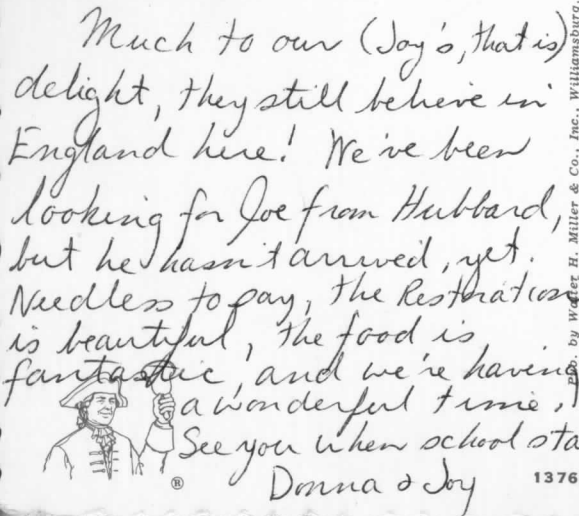 Much to our (Joy's, that is)
delight, they still believe in
England here! We've been
looking for Joe from Hubbard,
but he hasn't arrived, yet.
Needless to pay, the Restoration
is beautiful, the food is
fantastic, and we're having
a wonderful time.
See you when school sta
Donna & Joy
®
1376
Pub. by Walter H. Miller & Co., Inc., Williamsburg,